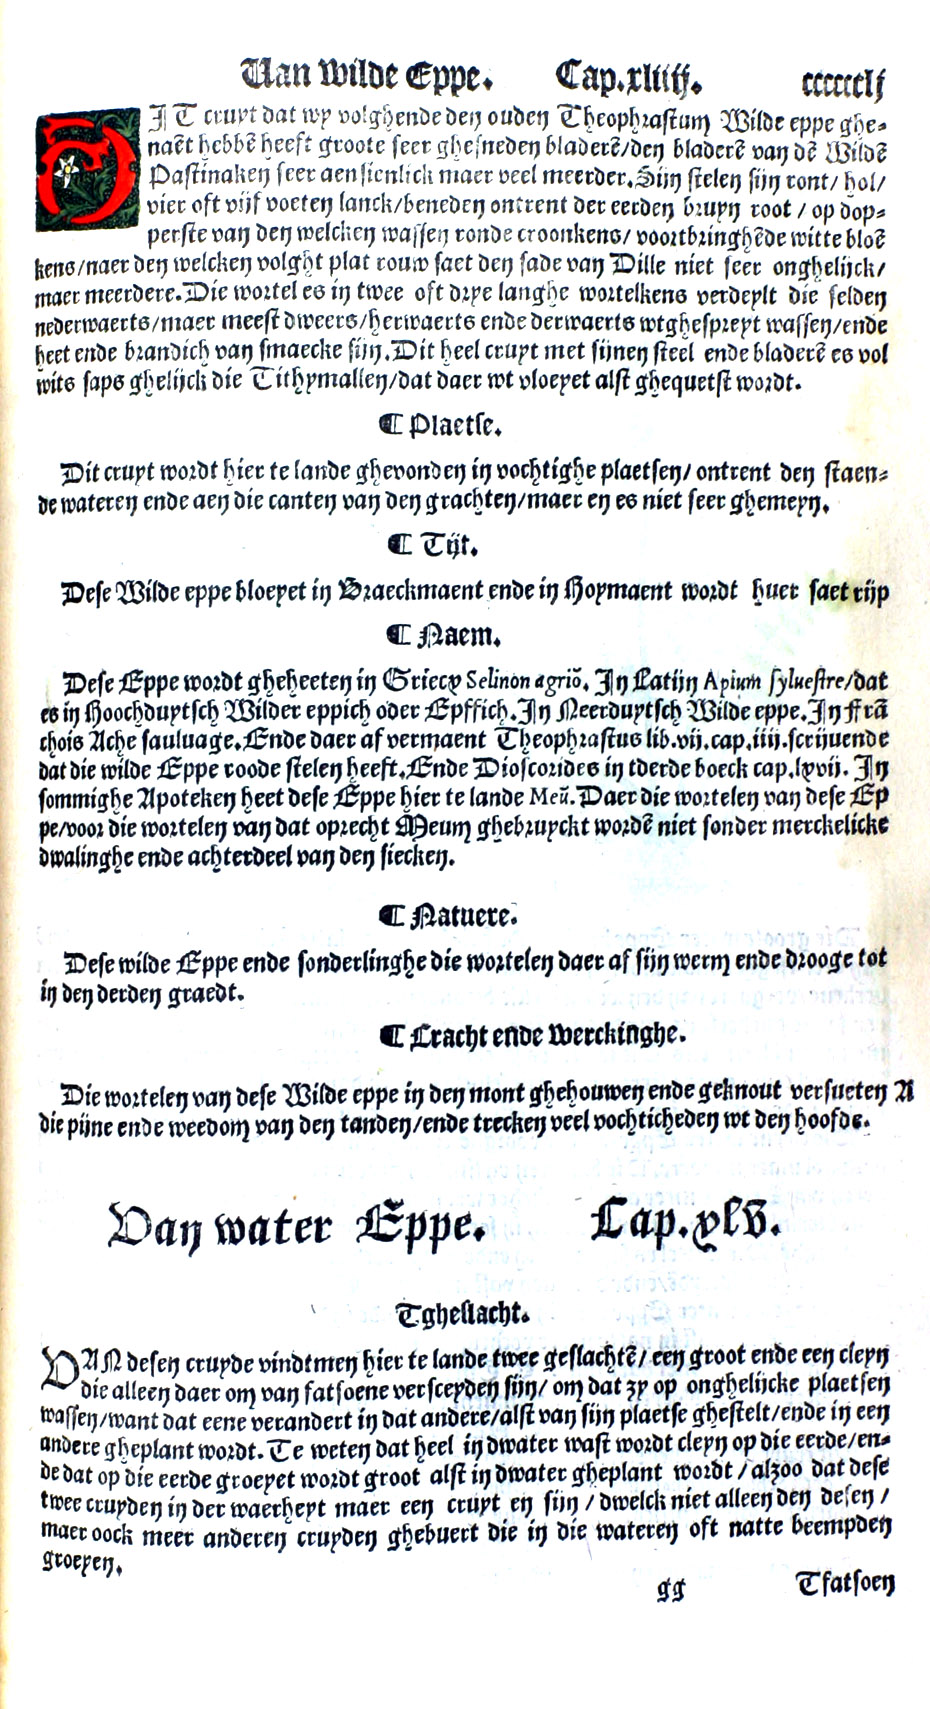 Van Wilde Eppe. Cap.xliiij. ccccccxlj
DIT cruyt dat wy volghende den ouden Theophrastum Wilde eppe ghe⸗
naēt hebbē heeft groote seer ghesneden bladerē/den bladerē van dē Wildē
Pastinaken seer aensienlick maer veel meerder. Sijn stelen sijn ront/ hol/
vier oft vijf voeten lanck/beneden ontrent der eerden bruyn root / op dop⸗
perste van den welcken wassen ronde croonkens/ voortbringhēde witte bloē
kens/naer den welcken volght plat rouw saet den sade van Dille niet seer onghelijck/
maer meerdere. Die wortel es in twee oft drye langhe wortelkens verdeylt die selden
nederwaerts/maer meest dweers/herwaerts ende derwaerts wtghespreyt wassen/ende
heet ende brandich van smaecke sijn. Dit heel cruyt met sijnen steel ende bladerē es vol
wits saps ghelijck die Tithymallen/dat daer wt vloeyet alst ghequetst wordt.
¶ Plaetse.
Dit cruyt wordt hier te lande ghevonden in vochtighe plaetsen/ ontrent den staen⸗
de wateren ende aen die canten van den grachten/maer en es niet seer ghemeyn.
¶ Tijt.
Dese Wilde eppe bloeyet in Braeckmaent ende in Hoymaent wordt huer saet rijp
¶ Naem.
Dese Eppe wordt gheheeten in Griecx Selinon agriō. In Latijn Apium syluestre/dat
es in Hoochduytsch Wilder eppich oder Epffich. In Neerduytsch Wilde eppe. In Frā
chois Ache sauluage. Ende daer af vermaent Theophrastus lib.vij.cap.iiij.scrijuende
dat die wilde Eppe roode stelen heeft. Ende Dioscorides in tderde boeck cap.lxvij. In
sommighe Apoteken heet dese Eppe hier te lande Meū. Daer die wortelen van dese Ep
pe/voor die wortelen van dat oprecht Meum ghebruyckt wordē niet sonder merckelicke
dwalinghe ende achterdeel van den siecken.
¶ Natuere.
Dese wilde Eppe ende sonderlinghe die wortelen daer af sijn werm ende drooge tot
in den derden graedt.
¶ Cracht ende Werckinghe.
Die wortelen van dese Wilde eppe in den mont ghehouwen ende geknout versueten A
die pijne ende weedom van den tanden/ende trecken veel vochticheden wt den hoofde.
Van water Eppe. Cap.xlv.
Tgheslacht.
VAN desen cruyde vindtmen hier te lande twee geslachtē/ een groot ende een cleyn
die alleen daer om van fatsoene versceyden sijn/ om dat zy op onghelijcke plaetsen
wassen/want dat eene verandert in dat andere/alst van sijn plaetse ghestelt/ende in een
andere gheplant wordt. Te weten dat heel in dwater wast wordt cleyn op die eerde/en⸗
de dat op die eerde groeyet wordt groot alst in dwater gheplant wordt / alzoo dat dese
twee cruyden in der waerheyt maer een cruyt en sijn / dwelck niet alleen den desen /
maer oock meer anderen cruyden ghebuert die in die wateren oft natte beempden
groeyen.
gg Tfatsoen